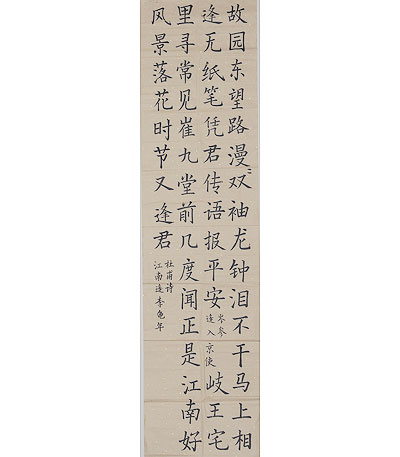 故园东望路漫〻双袖龙钟泪不干马上相
逢无纸笔凭君传语报平安
岑参
逢入京使
岐王宅
里寻常见崔九堂前几度闻正是江南好
风景落花时节又逢君
杜甫诗
江南逢李龟年